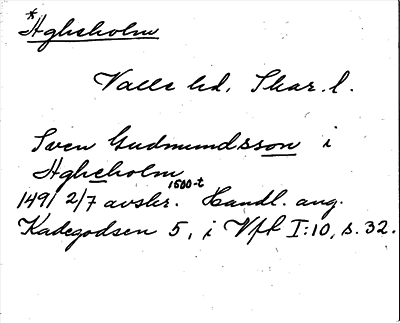 *Agheholm
Valle hd, Skar. l.
Sven Gudmundsson i
Agheholm
1491 2/7 avskr. 1500-t Handl. ang.
Kadegodsen 5, i Vfl I:10, s. 32.